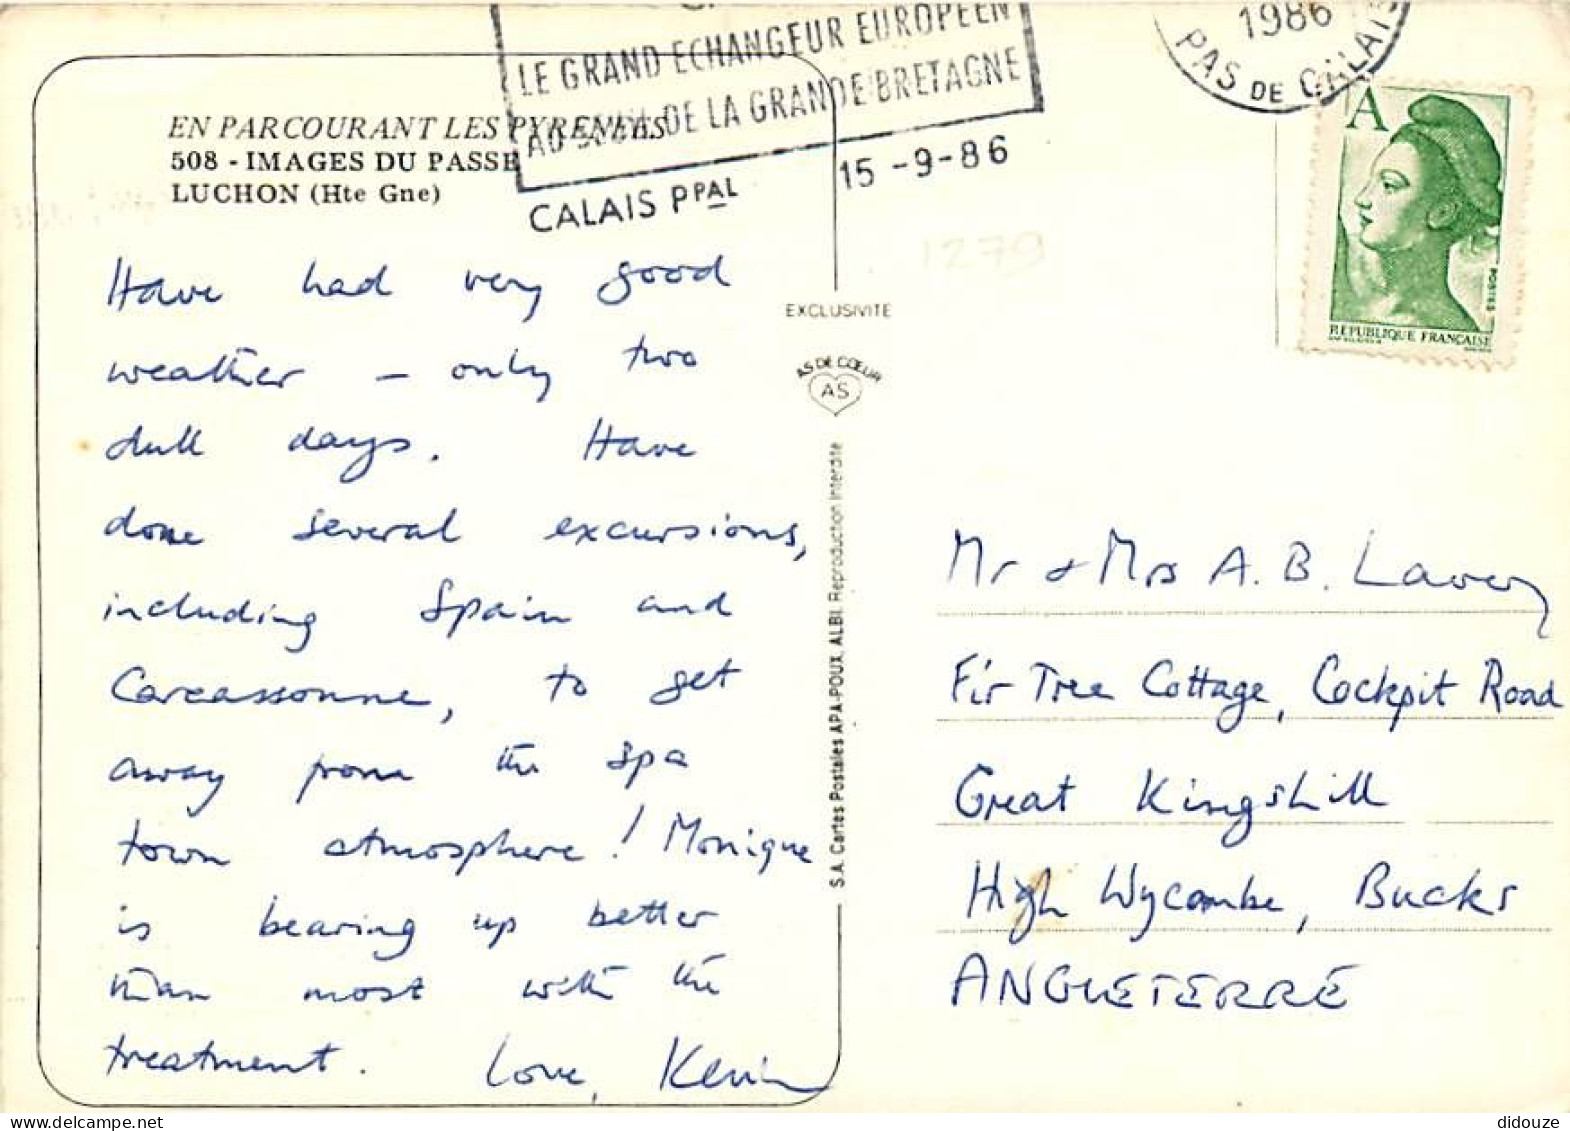 LE GRAND ECHANGEUR EUROPEEN
DE LA GRANDE BRETAGNE
CALAIS PPAL
15-9-86
1986
PAS DE CALAIS
A
POSTES
REPUBLIQUE FRANÇAISE
EN PARCOURANT LES PYRENEES
508 - IMAGES DU PASSE
LUCHON (Hte Gne)
1279
Have had very good
weather - only two
dull days. Have
done several excursions,
including Spain and
Carcassonne, to get
away from the spa
town atmosphere! Monique
is bearing up better
than most with the
treatment. Love, Kevin
EXCLUSIVITE
AS DE CŒUR
AS
S.A. Cartes Postales APA-POUX, ALBI. Reproduction interdite
Mr & Mrs A. B. Lavery
Fir Tree Cottage, Cockpit Road
Great Kingshill
High Wycombe, Bucks
ANGLETERRE
delcampe.net
didouze